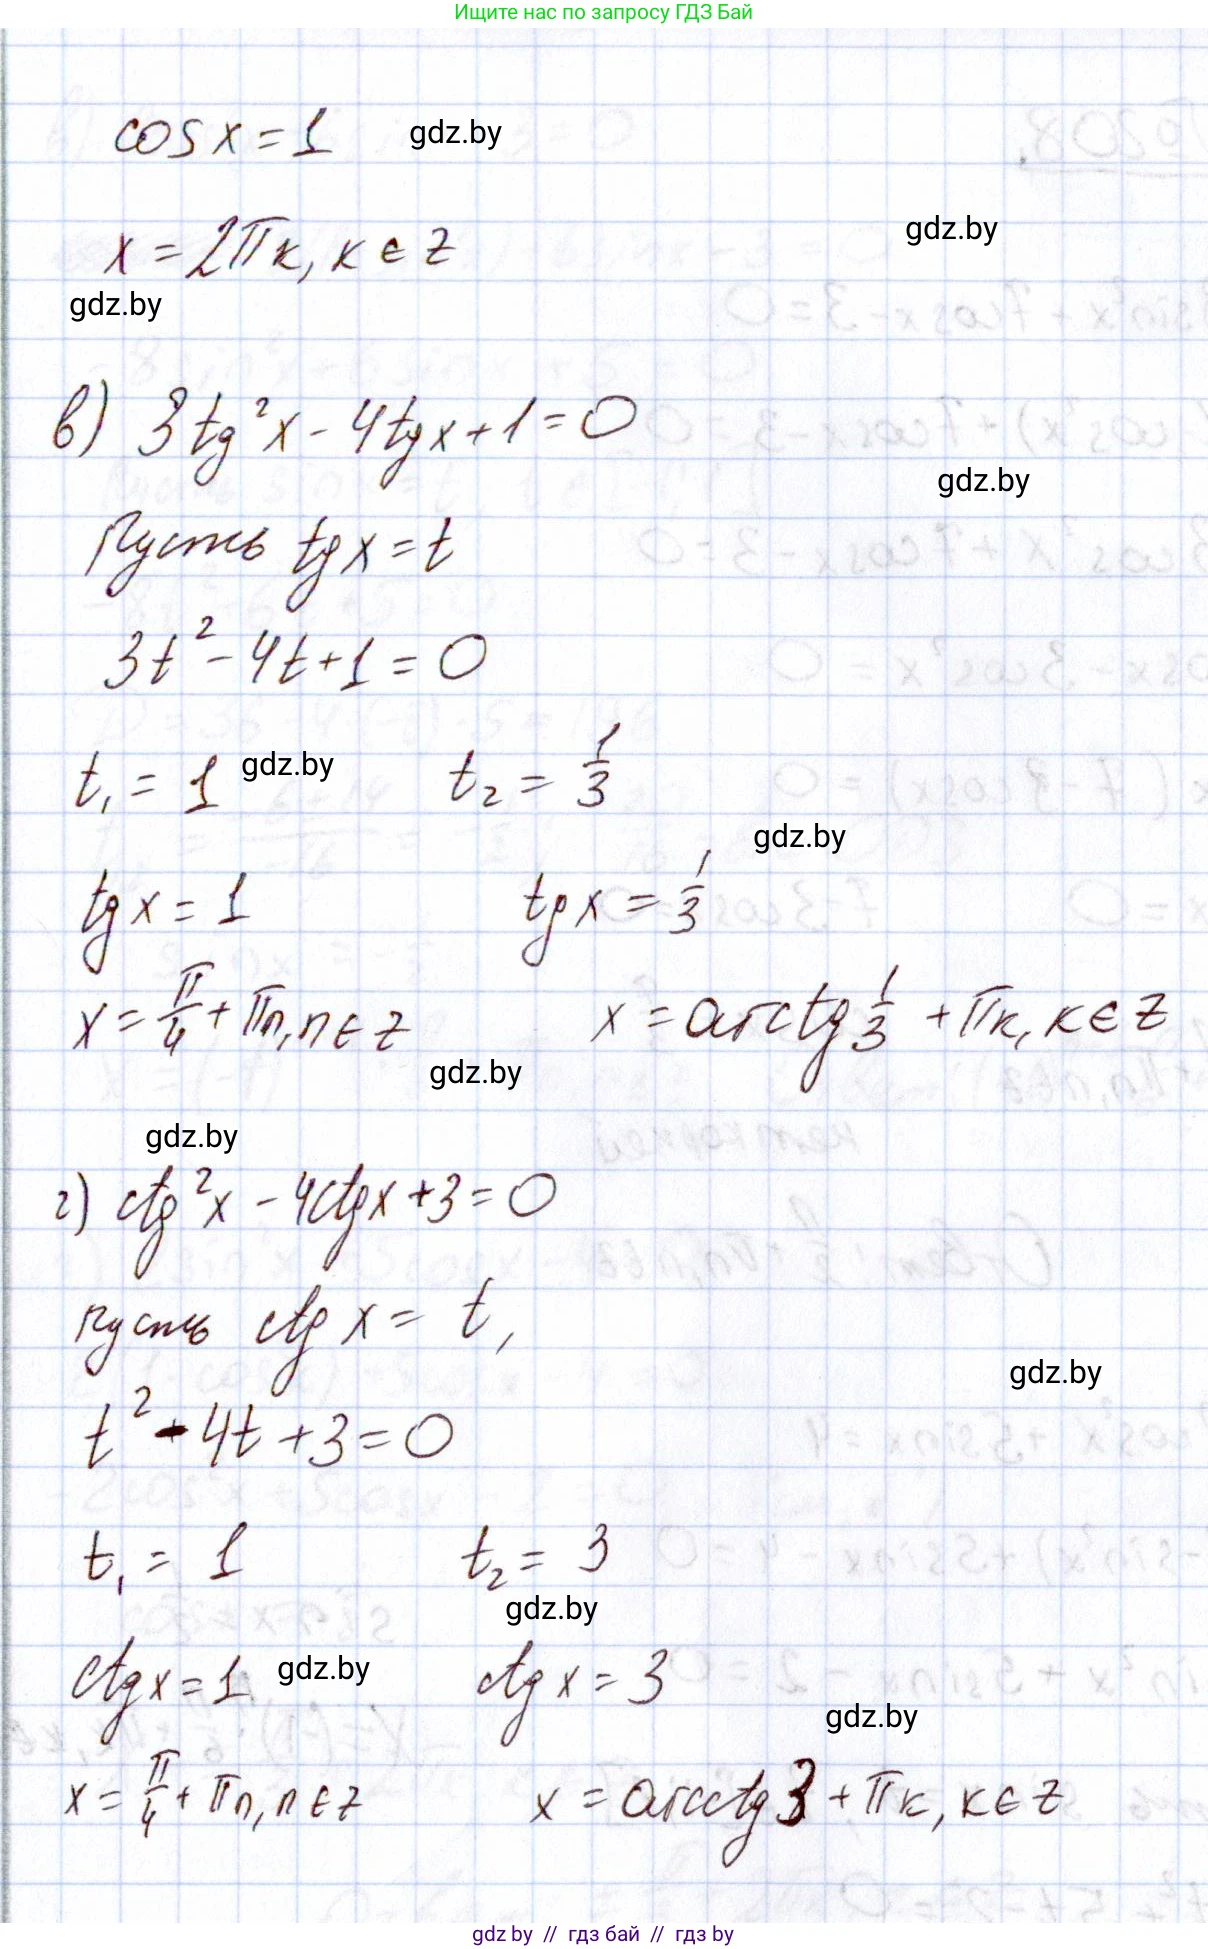 Ищите нас по запросу ГДЗ Бай
cos x = 1 gdz.by
gdz.by
x = 2πк, к ∈ z
gdz.by
в) 3tg²x - 4tgx + 1 = 0
gdz.by
Пусть tgx = t
3t² - 4t + 1 = 0
t₁ = 1 gdz.by t₂ = 1/3
gdz.by
tgx = 1 tgx = 1/3
x = π/4 + πn, n ∈ z x = arctg 1/3 + πк, к ∈ z
gdz.by
gdz.by
г) ctg²x - 4ctgx + 3 = 0
пусть ctg x = t,
gdz.by
t² - 4t + 3 = 0
t₁ = 1 t₂ = 3
gdz.by
ctgx = 1 gdz.by ctgx = 3
gdz.by
x = π/4 + πn, n ∈ z x = arcctg3 + πк, к ∈ z
gdz.by // гдз бай // гдз by